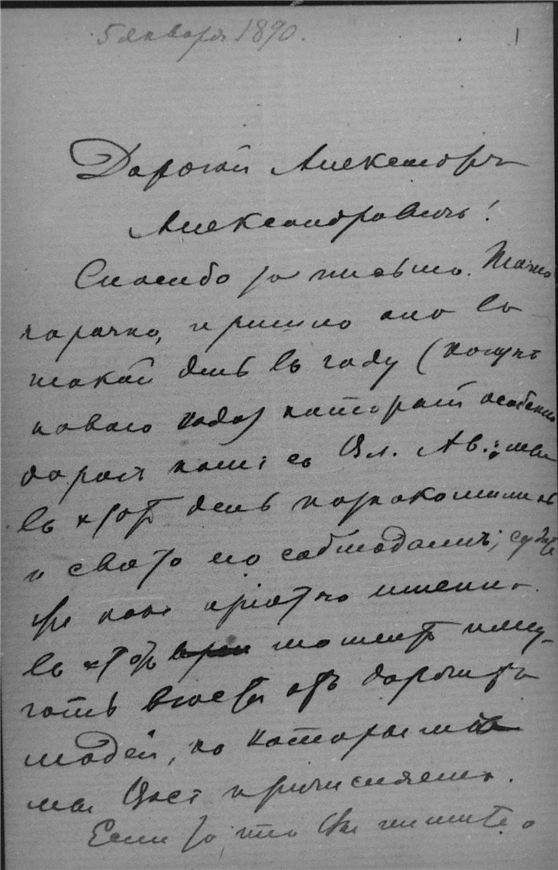 5 января 1890.
1
Дорогой Александръ
Александровичъ!
Спасибо за письмо. Точно
нарочно, пришло оно въ
такой день въ году (канунъ
новаго года) который особенно
дорогъ намъ съ Ал. Ав.: мы
въ этотъ день познакомились
и свято его соблюдаемъ;
же намъ пріятно именно
въ этотъ моментъ полу-
чать вѣсти отъ дорогихъ
людей, къ которымъ
мы Васъ причисляемъ.
Если то, что Вы пишете о